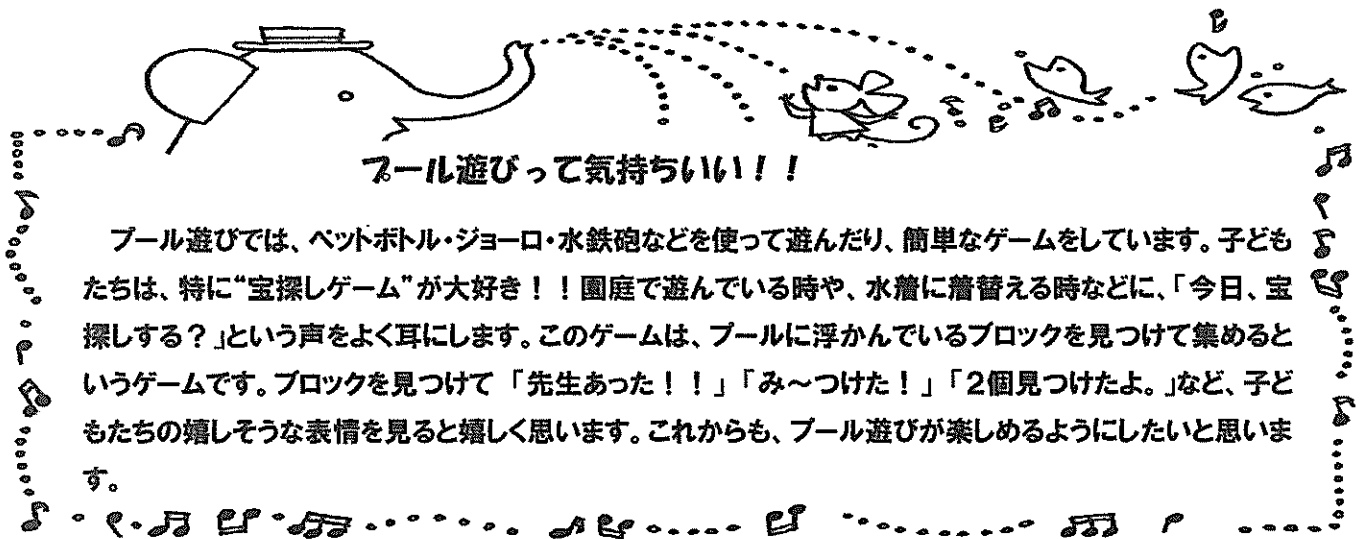 プール遊びって気持ちいい！！
プール遊びでは、ペットボトル・ジョーロ・水鉄砲などを使って遊んだり、簡単なゲームをしています。子ども
たちは、特に“宝探しゲーム”が大好き！！園庭で遊んでいる時や、水着に着替える時などに、「今日、宝
探しする？」という声をよく耳にします。このゲームは、プールに浮かんでいるブロックを見つけて集めると
いうゲームです。ブロックを見つけて「先生あった！！」「み～つけた！」「２個見つけたよ。」など、子ど
もたちの嬉しそうな表情を見ると嬉しく思います。これからも、プール遊びが楽しめるようにしたいと思いま
す。